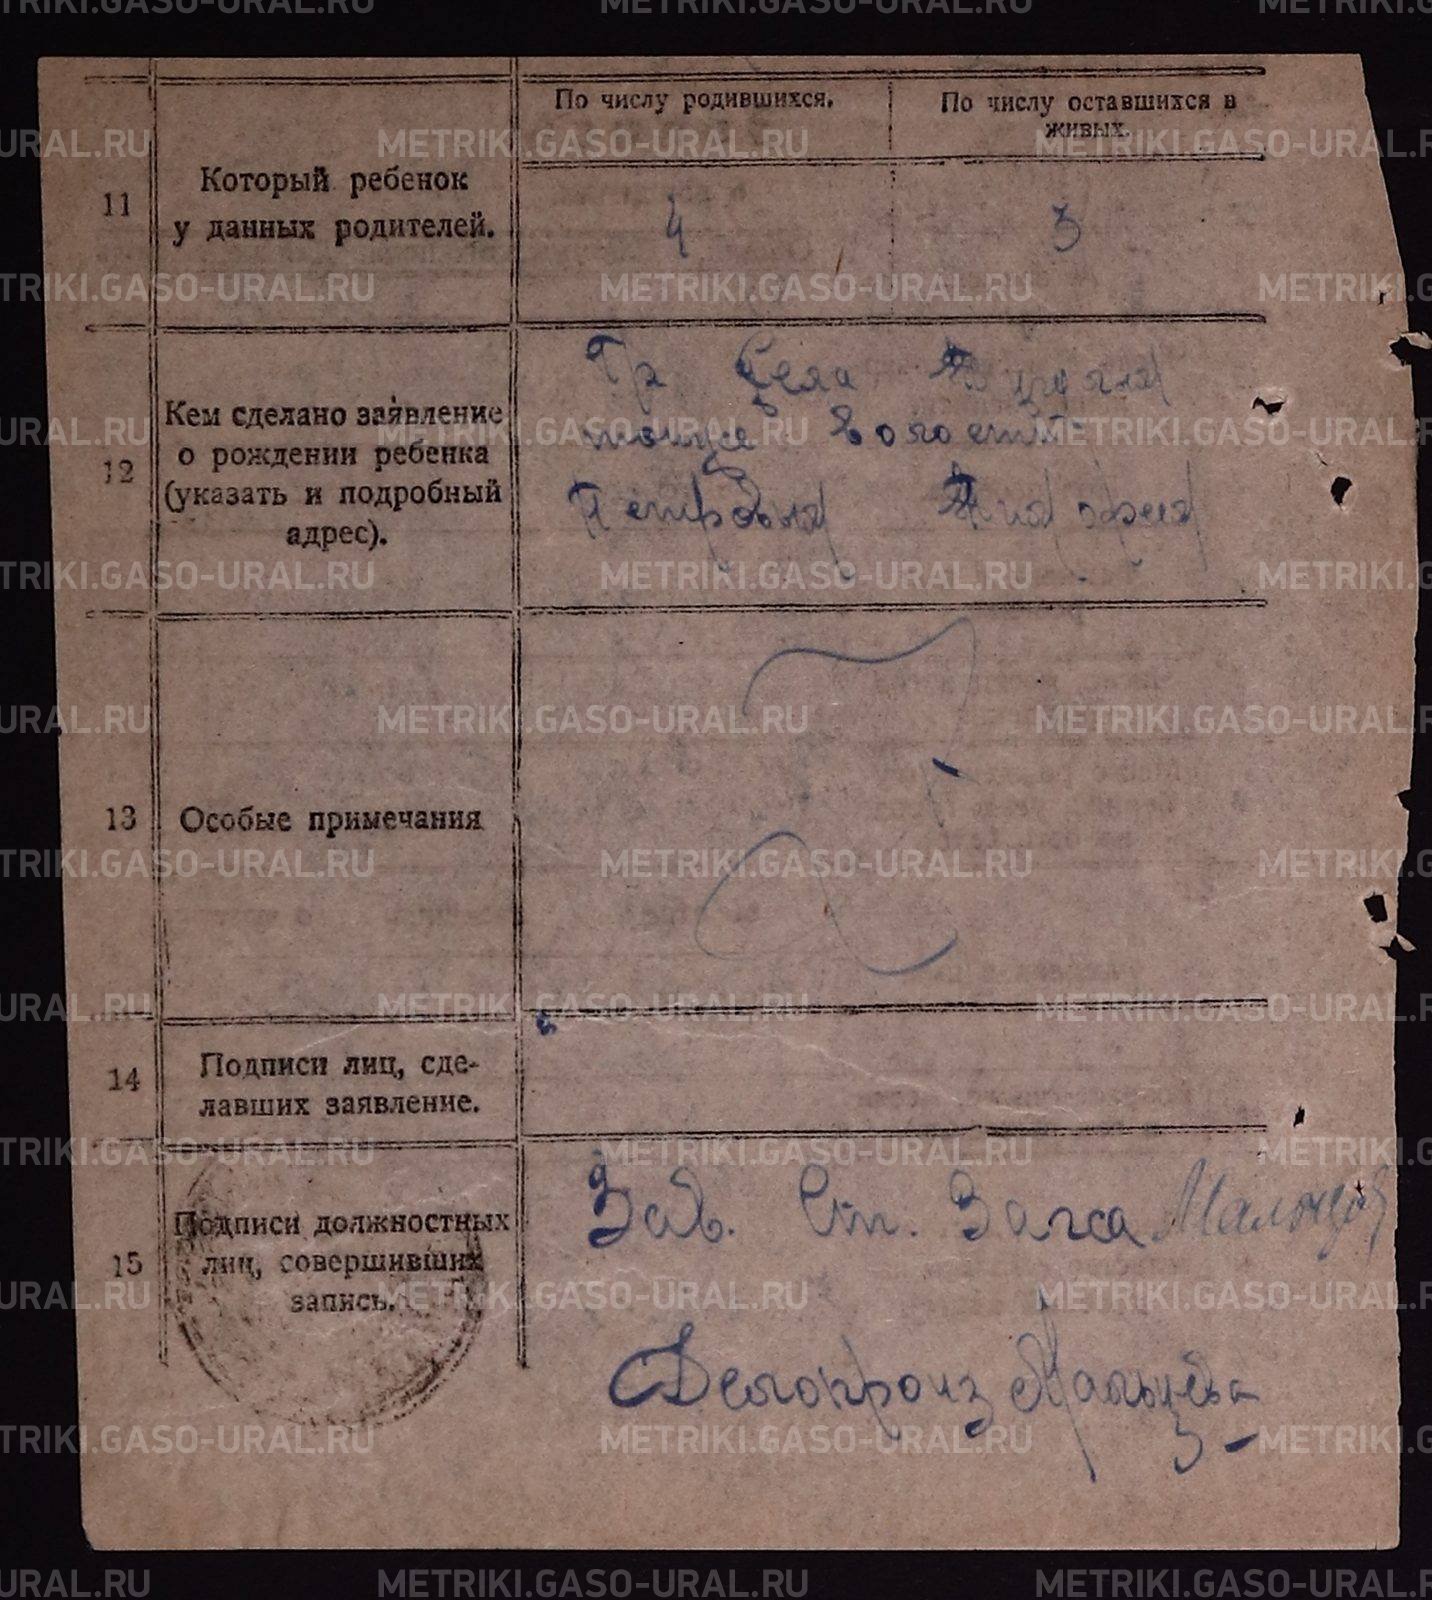 По числу родившихся.
По числу оставшихся в
живых.
11
Который ребенок
у данных родителей.
4
3
12
Кем сделано заявление
о рождении ребенка
(указать и подробный
адрес).
Гр Села
волости
Петровыя
13
Особые примечания
14
Подписи лиц, сде-
лавших заявление.
15
Подписи должностных
лиц, совершивших
запись.
Зав. Ст. Загса Мальцов
Делопроиз Мальцева
METRIKI.GASO-URAL.RU